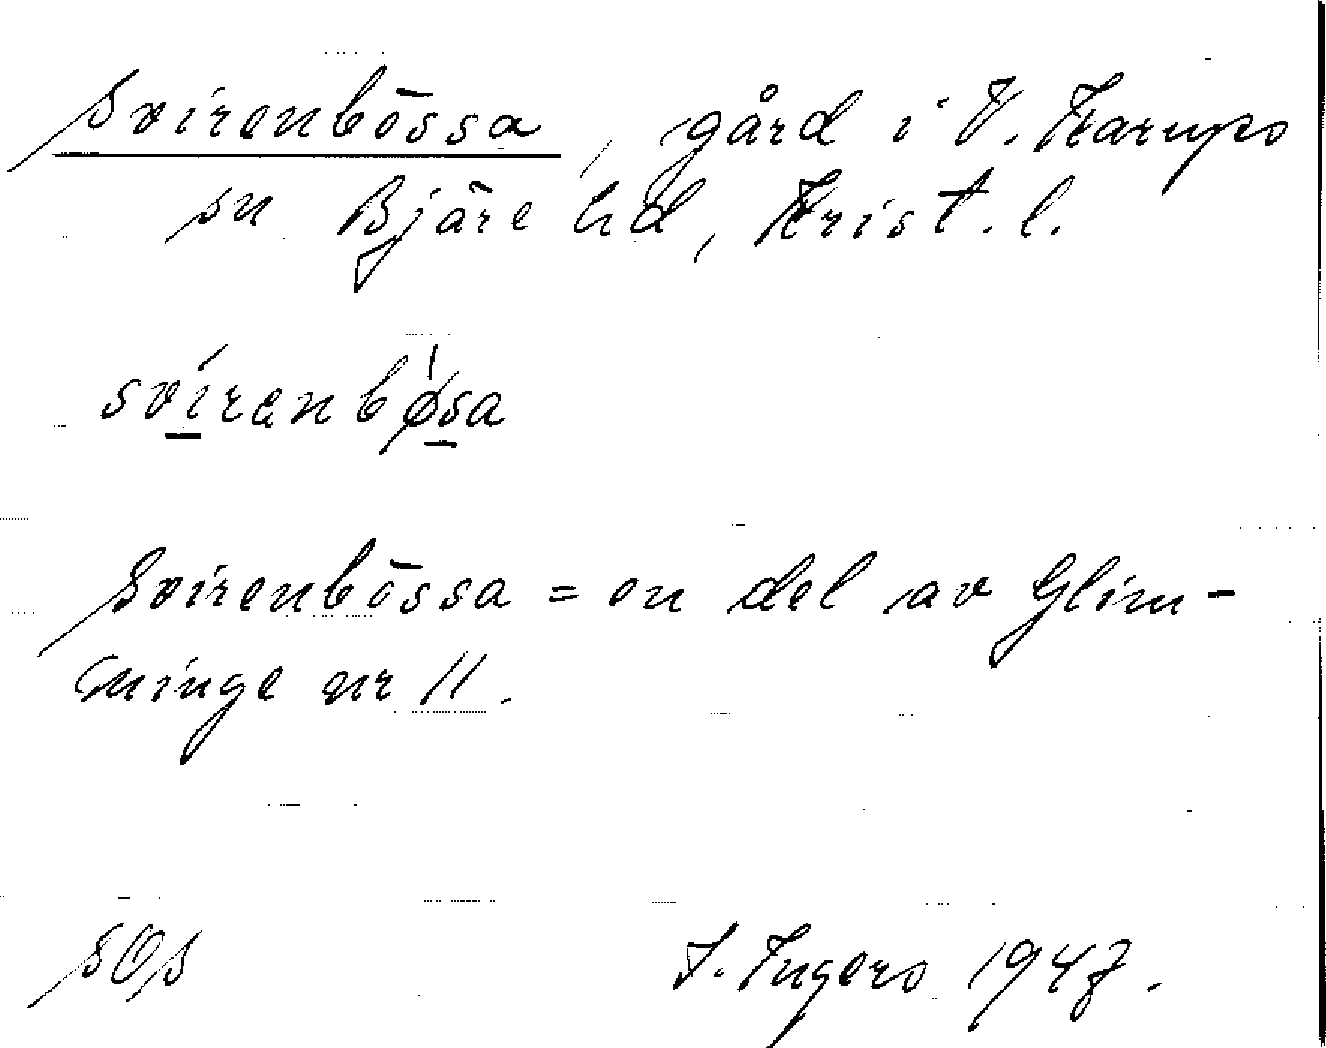 Svirenbössa, gård i V. Karups
sn Bjäre hd, Krist. l.
svírenbǿsa
Svirenbössa = en del av Glim-
minge nr 11.
SOS
I. Ingers 1947.